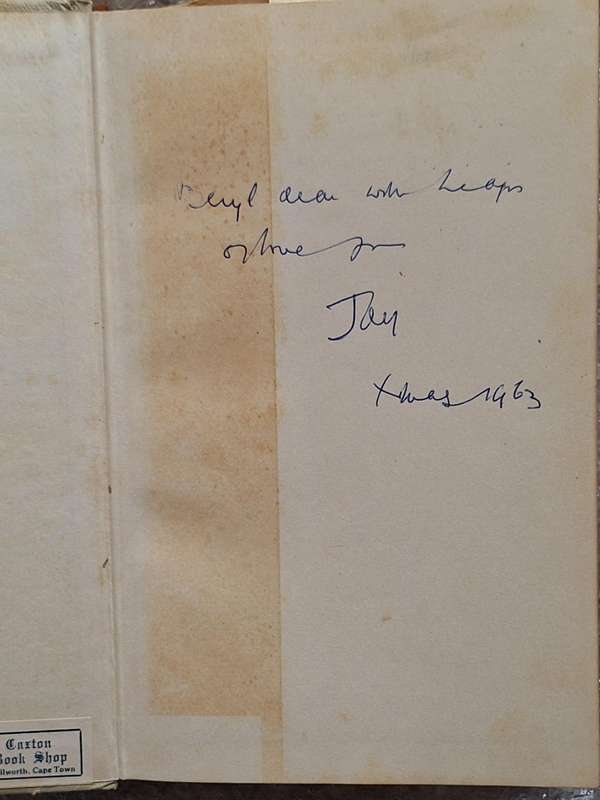 Beryl dear with heaps
of love from
Joy
Xmas 1963
Caxton
Book Shop
ilworth, Cape Town